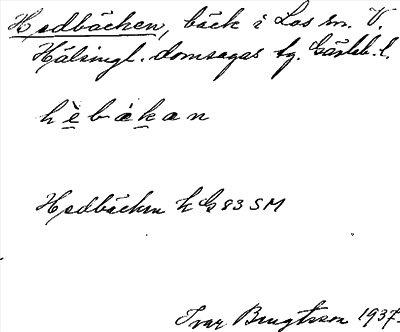 Hedbäcken, bäck i Los sn. V.
Hälsingl. domsagas tg. Gävleb. l.
hèbäkan
Hedbäcken k G83SM
Ivar Bengtsson 1937.